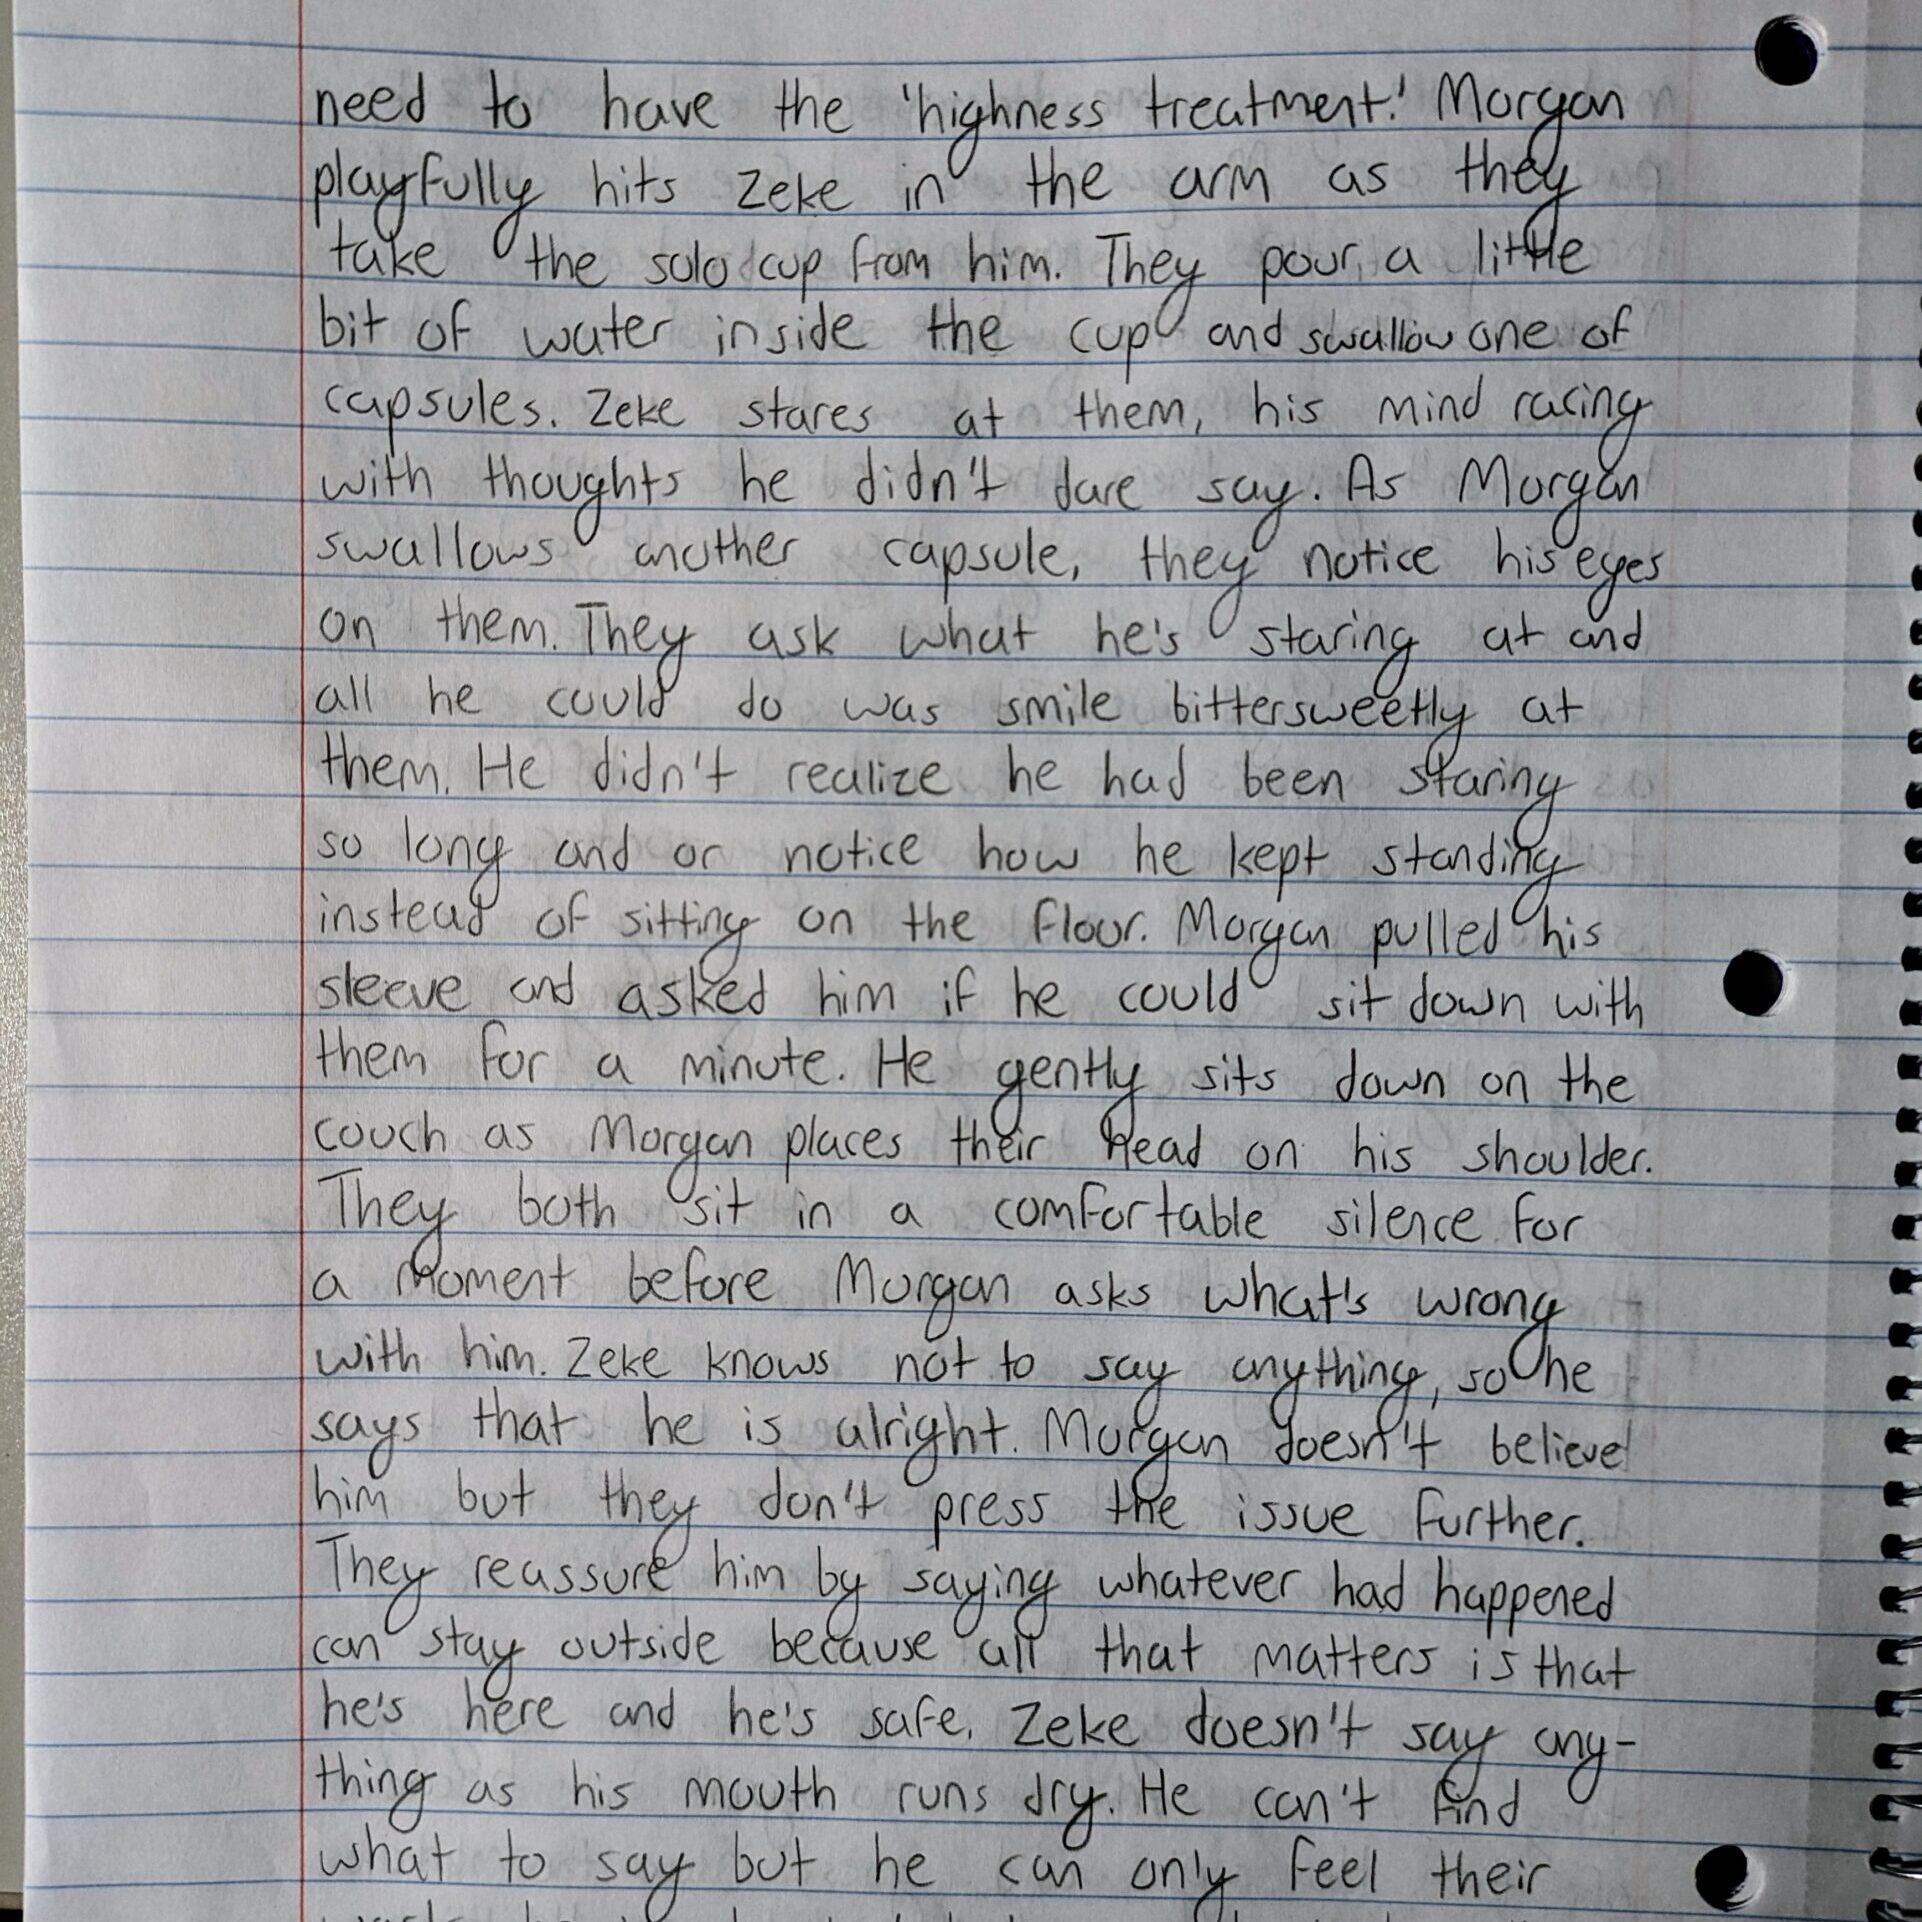 need to have the 'highness treatment.' Morgan
playfully hits Zeke in the arm as they
take the solo cup from him. They pour a little
bit of water inside the cup and swallow one of
capsules. Zeke stares at them, his mind racing
with thoughts he didn't dare say. As Morgan
swallows another capsule, they notice his eyes
on them. They ask what he's staring at and
all he could do was smile bittersweetly at
them. He didn't realize he had been staring
so long and or notice how he kept standing
instead of sitting on the floor. Morgan pulled his
sleeve and asked him if he could sit down with
them for a minute. He gently sits down on the
couch as Morgan places their head on his shoulder.
They both sit in a comfortable silence for
a moment before Morgan asks what's wrong
with him. Zeke knows not to say anything, so he
says that he is alright. Morgan doesn't believe
him but they don't press the issue further.
They reassure him by saying whatever had happened
can stay outside because all that matters is that
he's here and he's safe. Zeke doesn't say any-
thing as his mouth runs dry. He can't find
what to say but he can only feel their